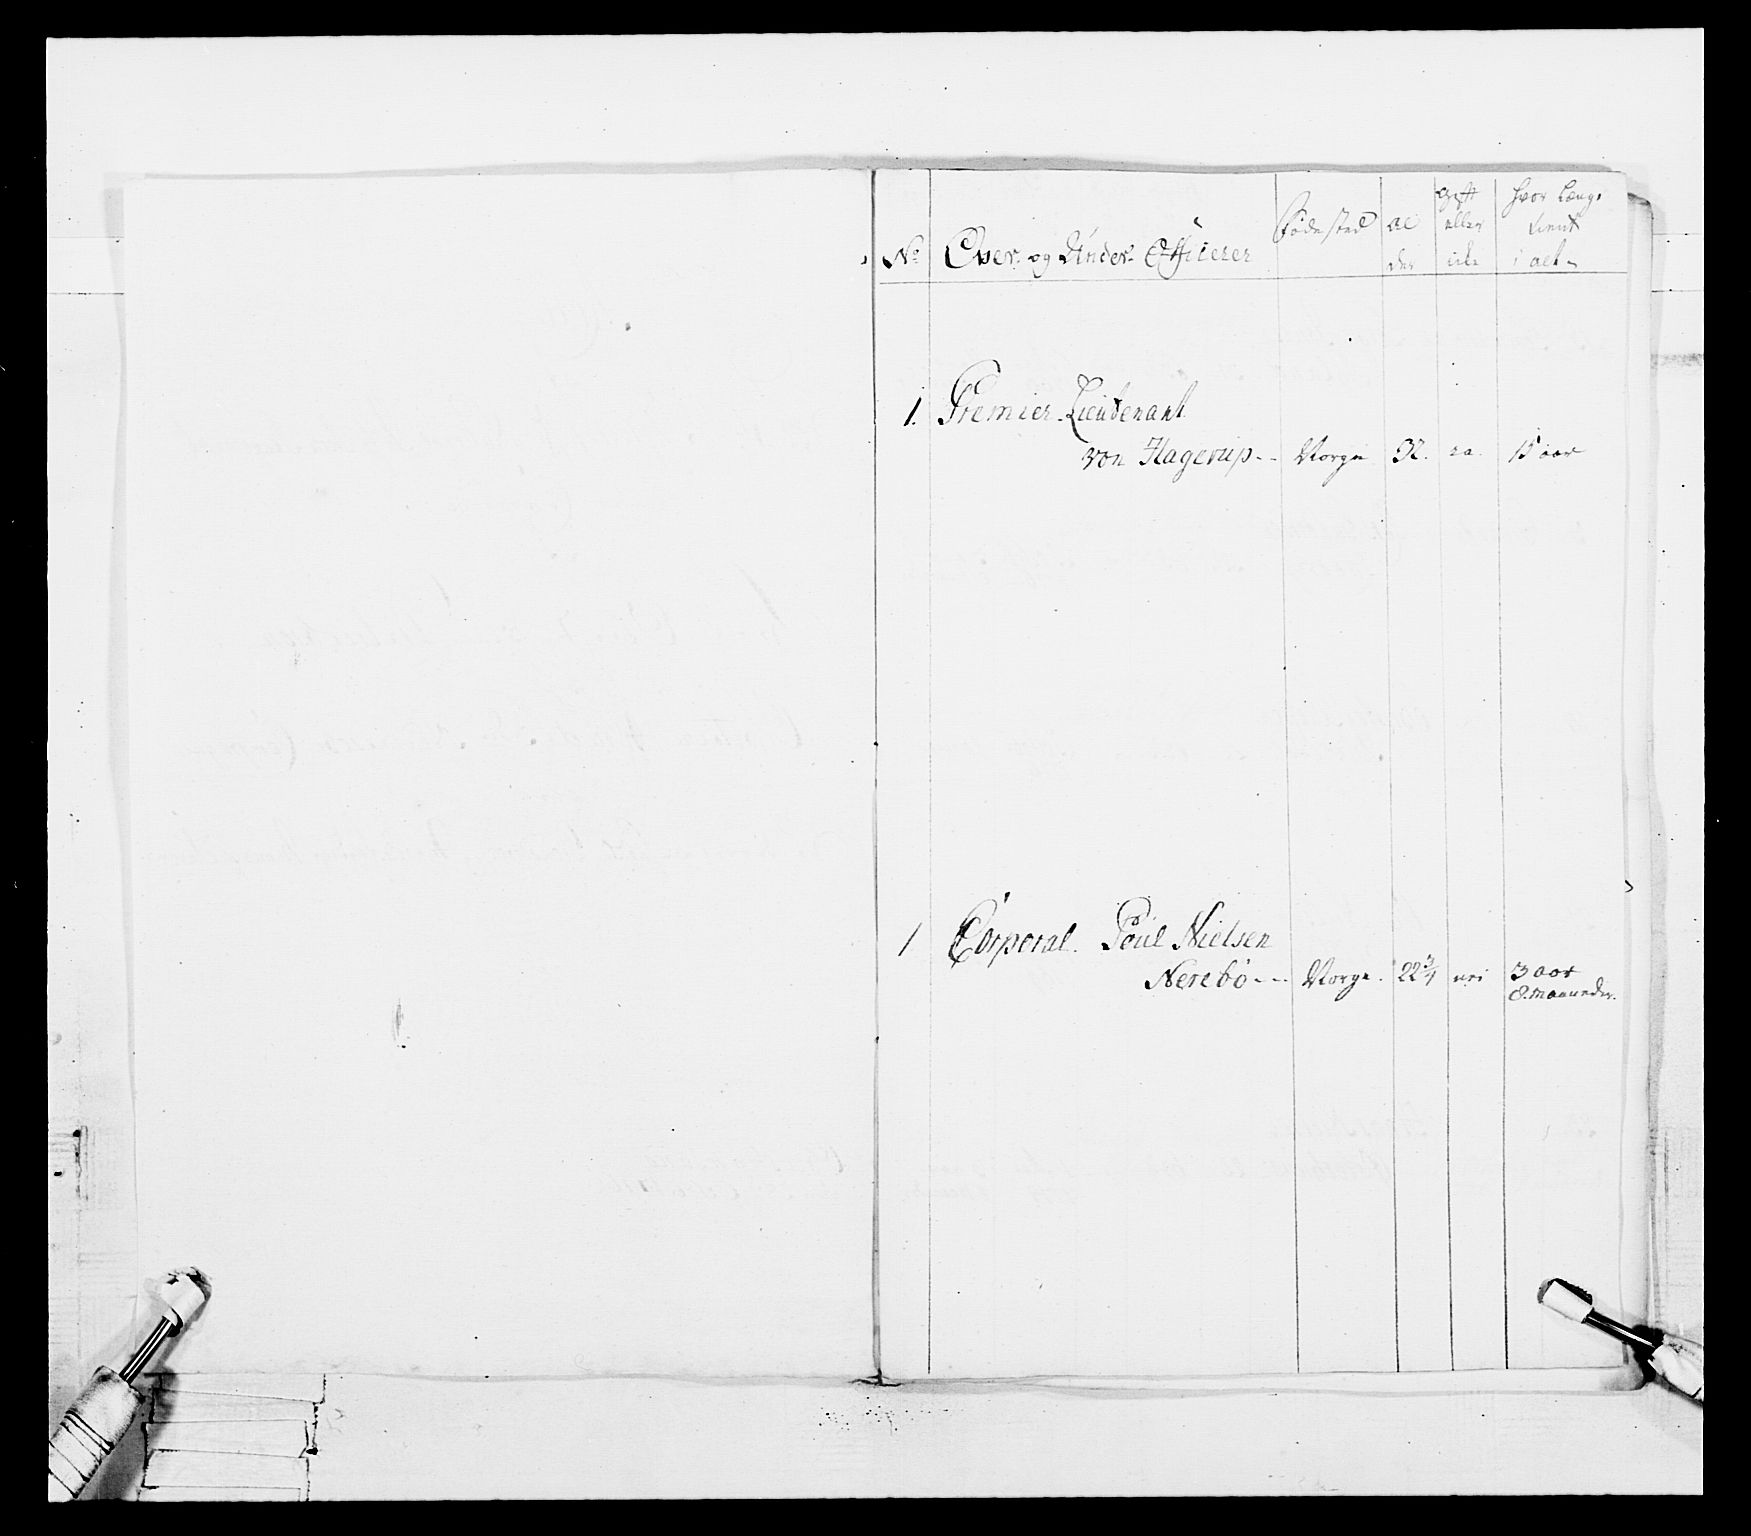 No Over og Under Officerer Fødested al der Gift eller ikke hvor længe tient i alt
1. Premier Lieutenant
von Hagerup -- Norge 32. ja 15 aar
1 Corporal Poul Nielsen
Nerebø --- Norge. 22 3/4 nei 3 aar
8. maaneder.